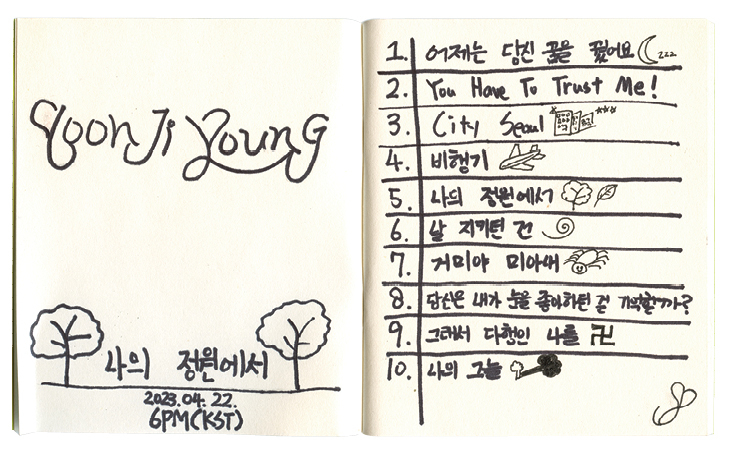 Yoon Ji Young
나의 정원에서
2023. 04. 22.
6PM(KST)
1. 어제는 당신 꿈을 꿨어요 zzz
2. You Have To Trust Me!
3. City Seoul
4. 비행기
5. 나의 정원에서
6. 날 지키던 건
7. 거미야
8. 당신은 내가 눈을 좋아하던 걸 기억할까?
9. 그래서 다행인 나를
10. 나의 그늘